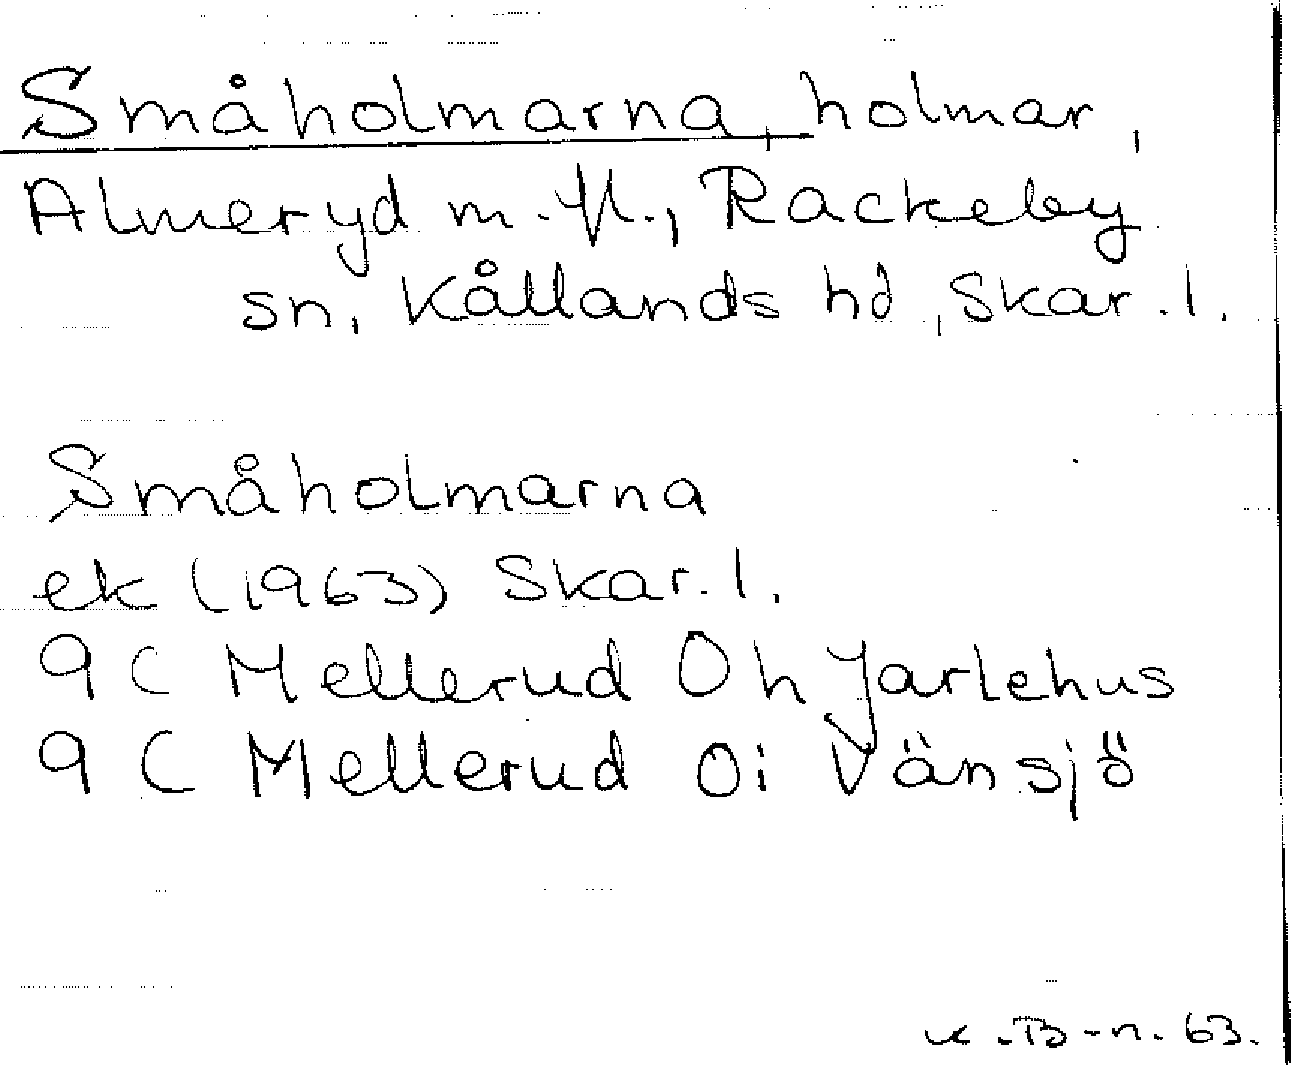 Småholmarna, holmar,
Almeryd m. fl., Rackeby
sn, Kållands hd, Skar. l.
Småholmarna
ek (1963) Skar. l.
9 C Mellerud 0h Jarlehus
9 C Mellerud 0i Vänsjö
K. B-n. 63.